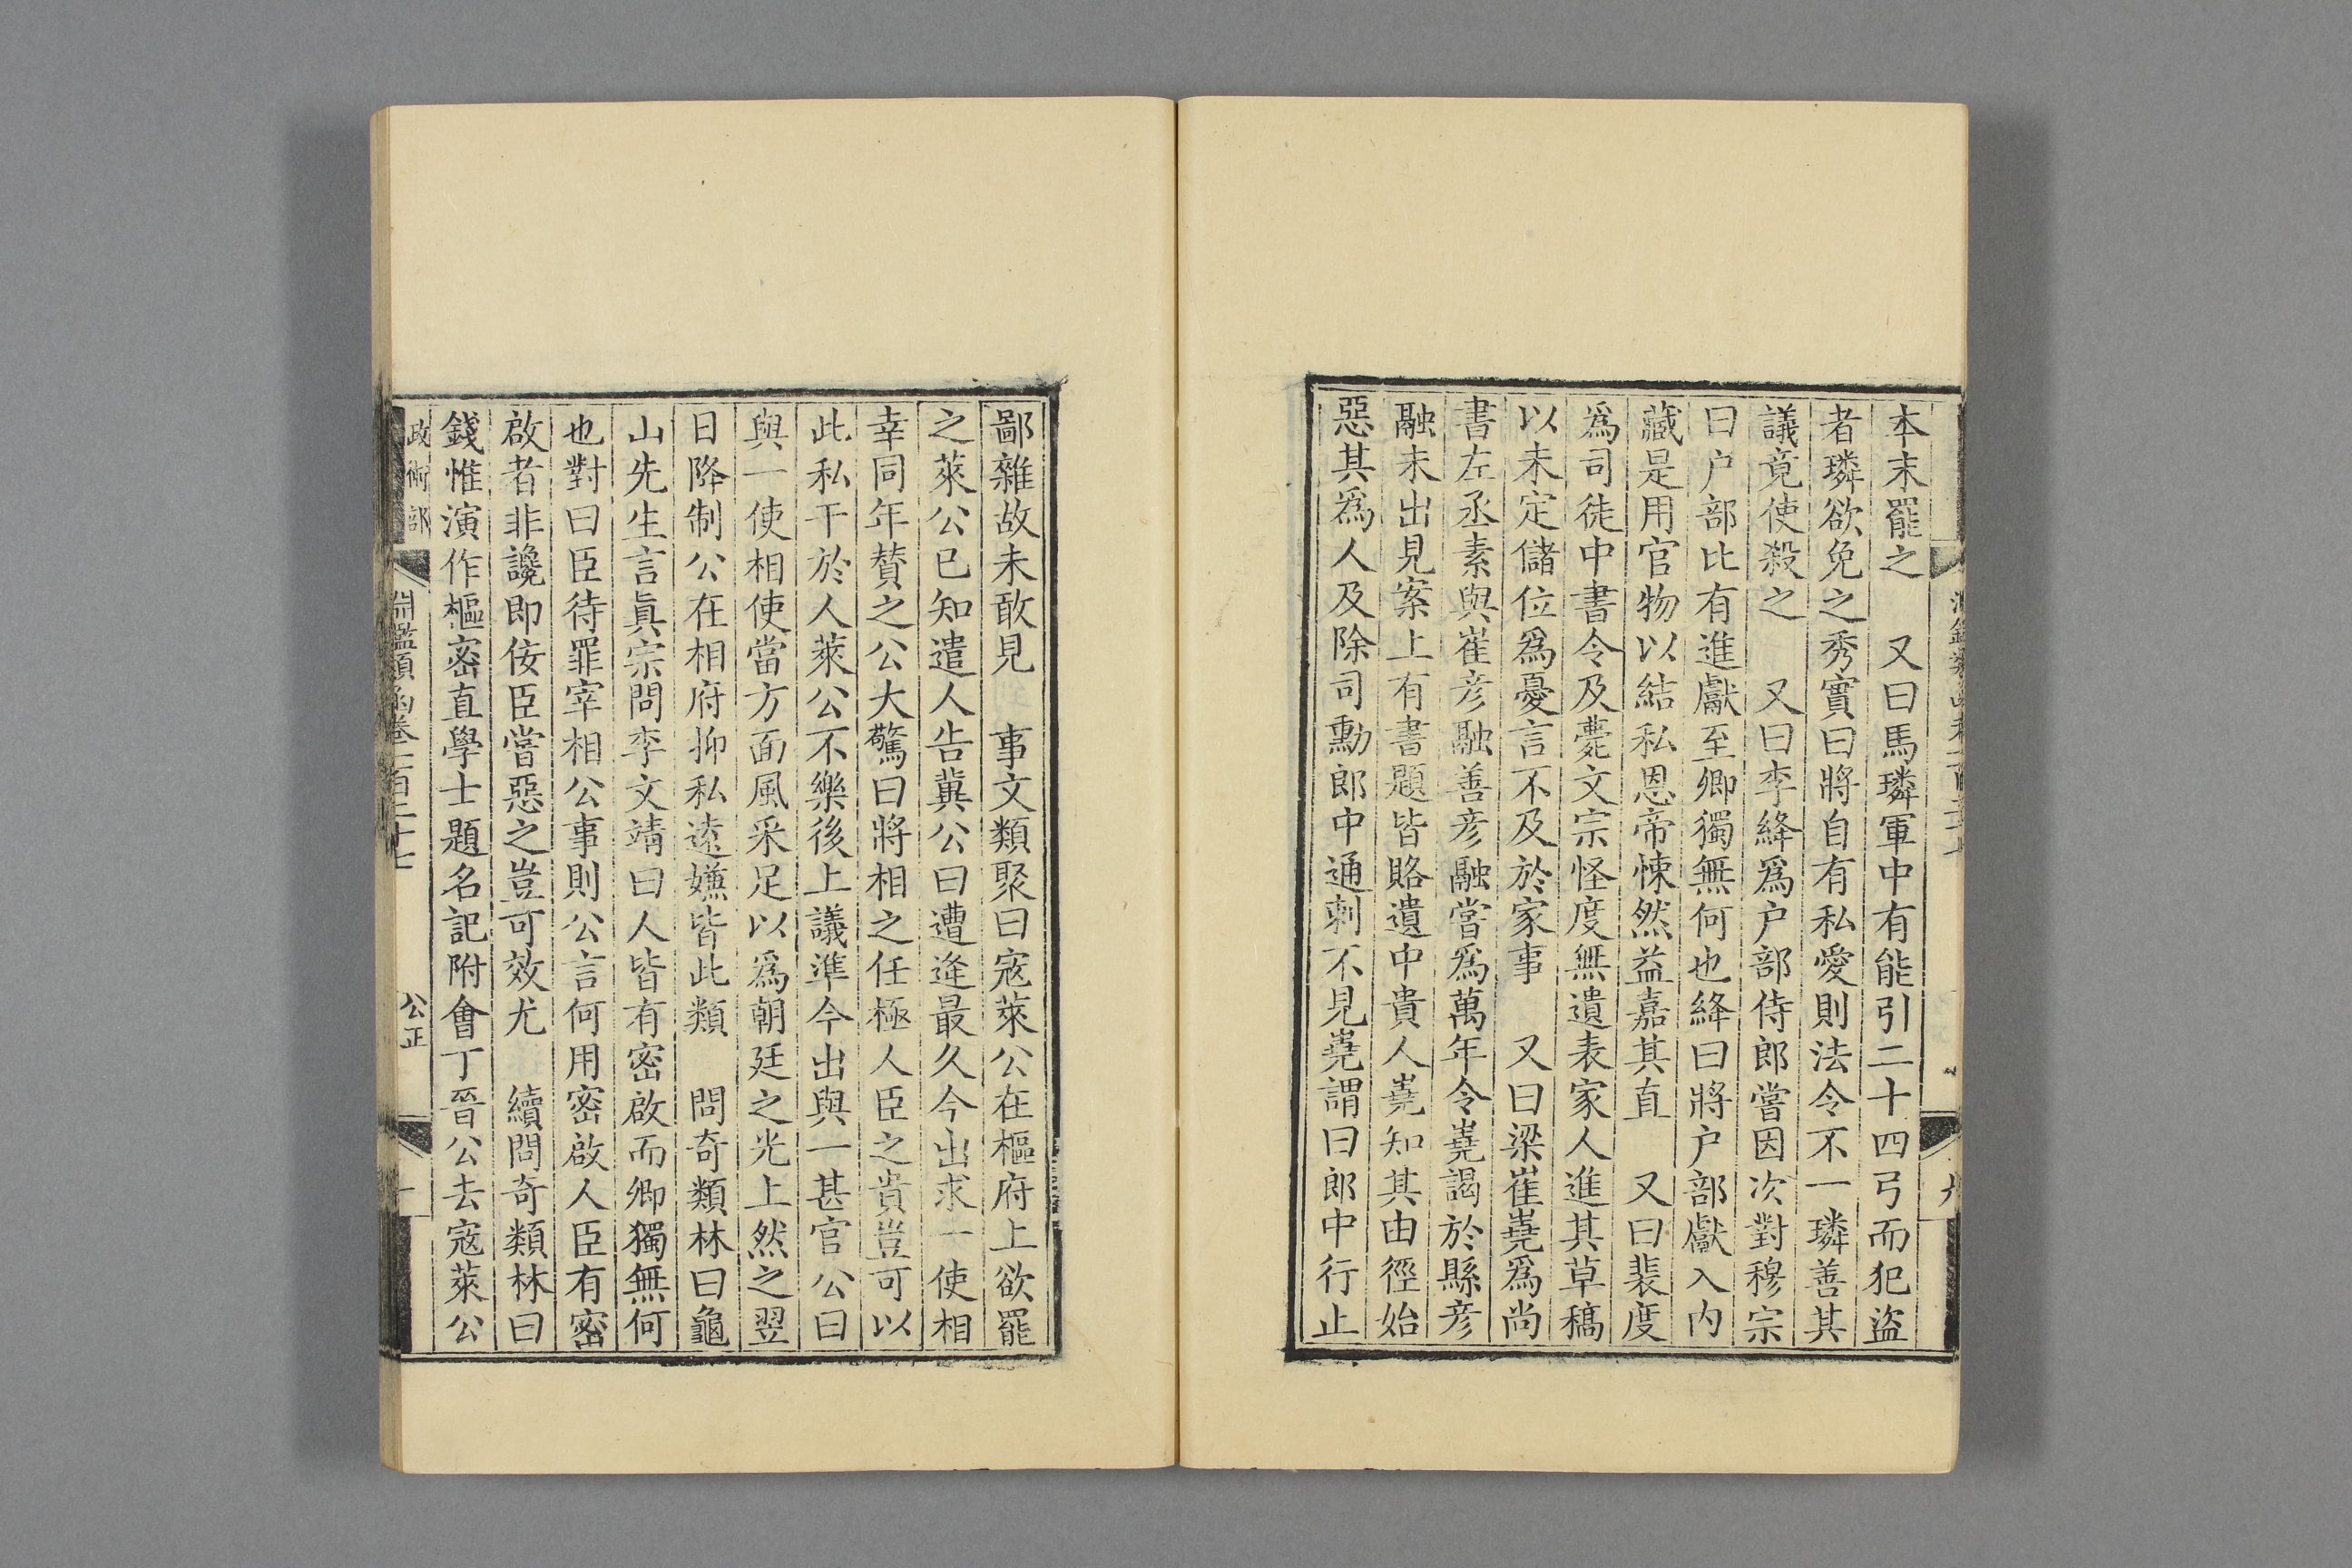 本末罷之　又曰馬璘軍中有能引二十四弓而犯盜
者璘欲免之秀實曰將自有私愛則法令不一璘善其
議竟使殺之　又曰李絳爲户部侍郎嘗因次對穆宗
曰户部比有進獻至卿獨無何也絳曰將户部獻入内
藏是用官物以結私恩帝悚然益嘉其直　又曰裴度
爲司徒中書令及薨文宗怪度無遺表家人進其草稿
以未定儲位爲憂言不及於家事　又曰梁崔嶤爲尚
書左丞素與崔彦融善彦融嘗爲萬年令嶤謁於縣彦
融未出見案上有書題皆賂遺中貴人嶤知其由徑始
惡其爲人及除司勳郎中通刺不見嶤謂曰郎中行止
鄙雜故未敢見　事文類聚曰寇萊公在樞府上欲罷
之萊公已知遣人告冀公曰遭逢最久今出求一使相
幸同年贊之公大驚曰將相之任極人臣之貴豈可以
此私干於人萊公不樂後上議準今出與一甚官公曰
與一使相使當方面風采足以爲朝廷之光上然之翌
日降制公在相府抑私遠嫌皆此類　問奇類林曰龜
山先生言眞宗問李文靖曰人皆有密啟而卿獨無何
也對曰臣待罪宰相公事則公言何用密啟人臣有密
啟者非讒即佞臣嘗惡之豈可效尤　續問奇類林曰
錢惟演作樞密直學士題名記附會丁晉公去寇萊公
政術部
淵鑑類函卷一百二十七
公正